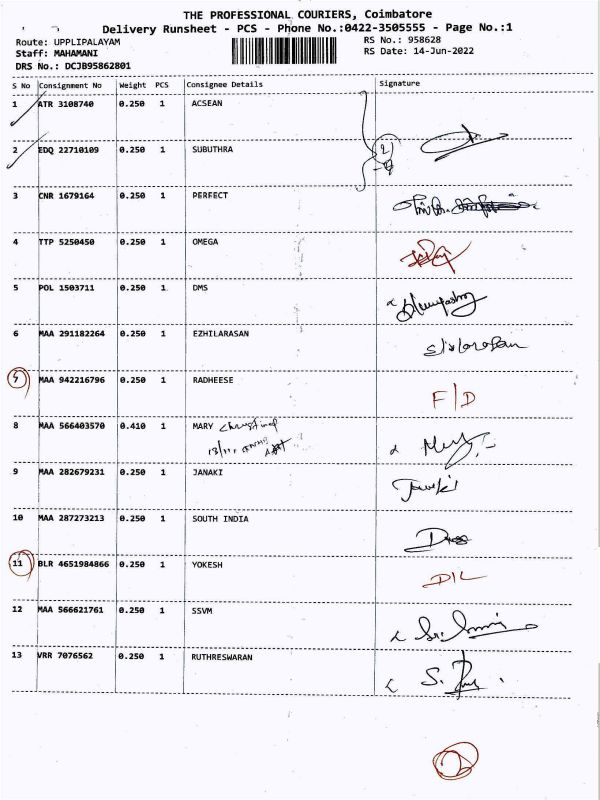 THE PROFESSIONAL COURIERS, Coimbatore
Delivery Runsheet - PCS - Phone No.:0422-3505555 - Page No.:1
Route: UPPLIPALAYAM
RS No.: 958628
Staff: MAHAMANI
RS Date: 14-Jun-2022
DRS No.: DCJB95862801
S No Consignment No Weight PCS Consignee Details Signature
1 ATR 3108740 0.250 1 ACSEAN
2 EDQ 22710109 0.250 1 SUBUTHRA
3 CNR 1679164 0.250 1 PERFECT
4 TTP 5250450 0.250 1 OMEGA
5 POL 1503711 0.250 1 DMS
6 MAA 291182264 0.250 1 EZHILARASAN
MAA 942216796 0.250 1 RADHEESE F/D
8 MAA 566403570 0.410 1 MARY
9 MAA 282679231 0.250 1 JANAKI
10 MAA 287273213 0.250 1 SOUTH INDIA
11 BLR 4651984866 0.250 1 YOKESH D/L
12 MAA 566621761 0.250 1 SSVM
13 VRR 7076562 0.250 1 RUTHRESWARAN